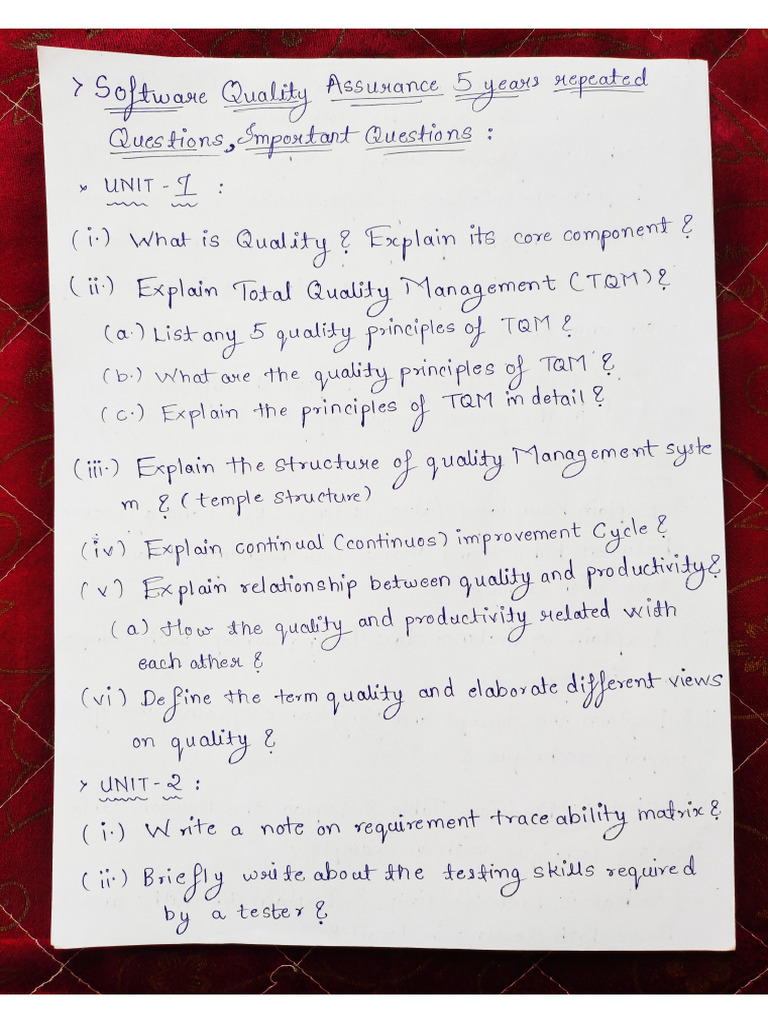 > Software Quality Assurance 5 years repeated
Questions, Important Questions :
> UNIT - 1 :
(i.) What is Quality ? Explain its core component ?
(ii.) Explain Total Quality Management (TQM) ?
(a.) List any 5 quality principles of TQM ?
(b.) What are the quality principles of TQM ?
(c.) Explain the principles of TQM in detail ?
(iii.) Explain the structure of quality Management syste
m ? (temple structure)
(iv) Explain continual (continuos) improvement Cycle ?
(v) Explain relationship between quality and productivity ?
(a) How the quality and productivity related with
each other ?
(vi) Define the term quality and elaborate different views
on quality ?
> UNIT - 2 :
(i.) Write a note on requirement traceability matrix ?
(ii.) Briefly write about the testing skills required
by a tester ?